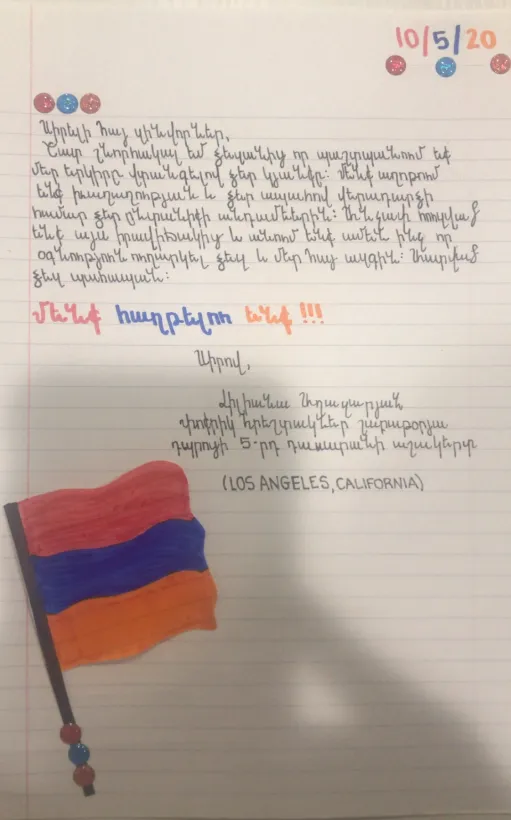 10/5/20
Սիրելի հայ զինվորներ,
Շատ շնորհակալ եմ ձեզանից որ պաշտպանում եք
մեր երկիրը վտանգելով ձեր կյանքը: Մենք աղոթում
ենք խաղաղության և ձեր ապահով վերադարձի
համար ձեր ընտանիքի անդամներին: Մենք շատ հուզված
ենք այս իրավիճակից և անում ենք ամեն ինչ որ
օգնություն ուղարկել ձեզ և մեր հայ ազգին: Աստված
ձեզ պահապան:
ՄԵՆՔ հաղթելու ենք !!!
Սիրով,
Լիլիանա Աղազարյան
Փոքրիկ հրեշտակներ շաբաթօրյա
դպրոցի 5-րդ դասարանի աշակերտ
(LOS ANGELES, CALIFORNIA)